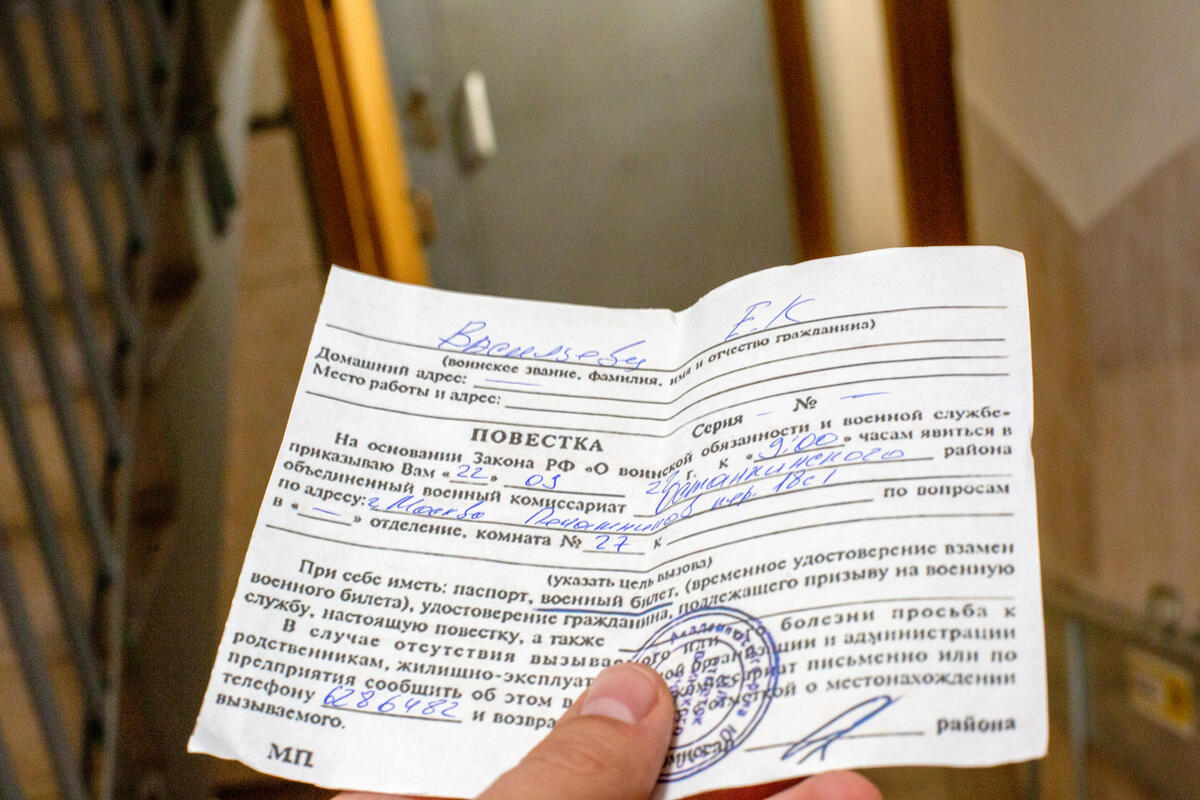 Васильеву Е.К
(воинское звание, фамилия, имя и отчество гражданина)
Домашний адрес: —
Место работы и адрес:
Серия – № —
ПОВЕСТКА
На основании Закона РФ «О воинской обязанности и военной службе»
приказываю Вам «22» 09 г. к «9:00» часам явиться в
объединенный военный комиссариат Останкинского района
по адресу: г. Москва пер. 18с1 по вопросам
в «—» отделение, комната № 27 к
(указать цель вызова)
При себе иметь: паспорт, военный билет, (временное удостоверение взамен
военного билета), удостоверение гражданина, подлежащего призыву на военную
службу, настоящую повестку, а также
В случае отсутствия вызываемого или болезни просьба к
родственникам, жилищно-эксплуат ной организации и администрации
предприятия сообщить об этом в комиссариат письменно или по
телефону 6286482 и возвра отметкой о местонахождении
вызываемого.
района
МП.